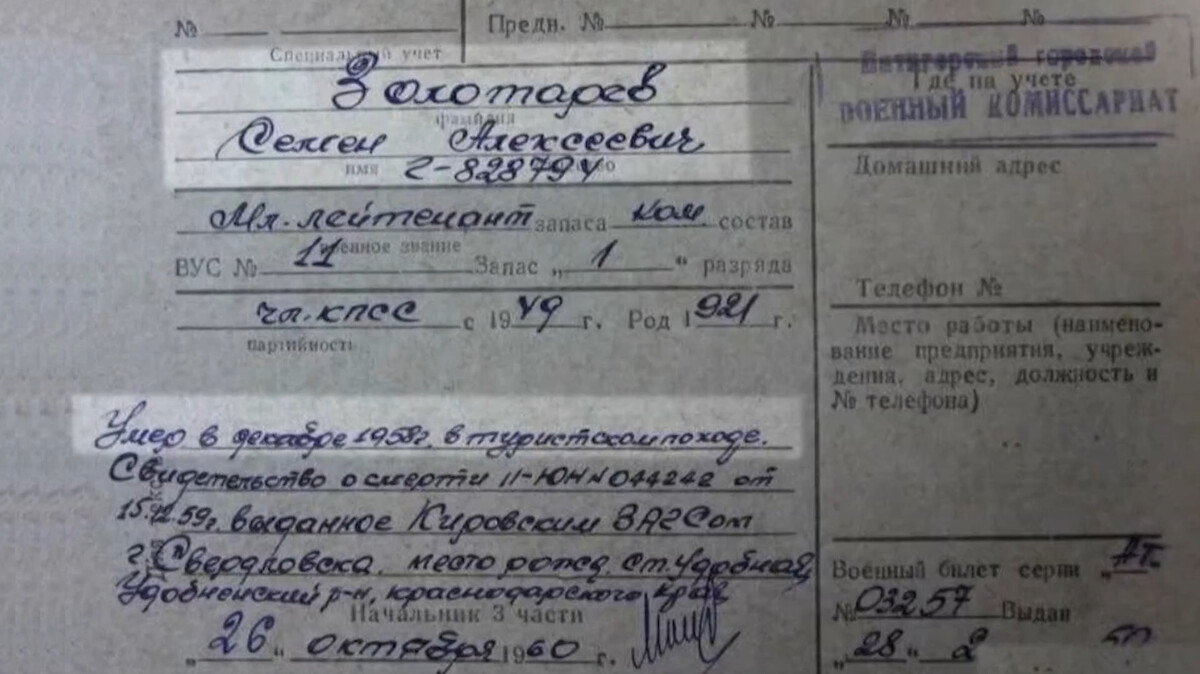 № Предн. № № № №
Специальный учет
Золотарев
фамилия
Семен Алексеевич
имя
Г-828794
Мл. лейтенант запаса ком состав
военное звание
ВУС № 11 Запас „ 1 “ разряда
чл. КПСС с 1949 г. Род 1921 г.
партийность
Умер в декабре 1958г. в туристском походе.
Свидетельство о смерти II-ЮН N 044242 от
15.12.59г. выданное Кировским ЗАГСом
г. Свердловска. место рожд. ст. Удобная,
Удобненский р-н, краснодарского края
Начальник 3 части
„ 26 “ октября 1960 г.
Пятигорский городской
Где на учете
ВОЕННЫЙ КОМИССАРИАТ
Домашний адрес
Телефон №
Место работы (наимено-
вание предприятия, учреж-
дения, адрес, должность и
№ телефона)
Военный билет серии „АТ“
№ 03257 Выдан
„ 28 “ 2 50